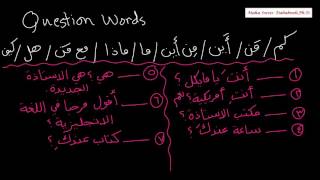 Question Words
كم / مَن / أَين / مِن أين / ما / ماذا / مع مَن / هل / كيف
١ - أنتَ، يا مايكل؟
٢ - أنتِ أمريكية؟ نعم
٣ - مكتب الاستاذة؟
٤ - ساعة عندك؟
٥ - هي؟ هي الاستاذة
الجديدة.
٦ - أقول مرحبا في اللغة
الانجليزية؟
٧ - كتاب عندك؟